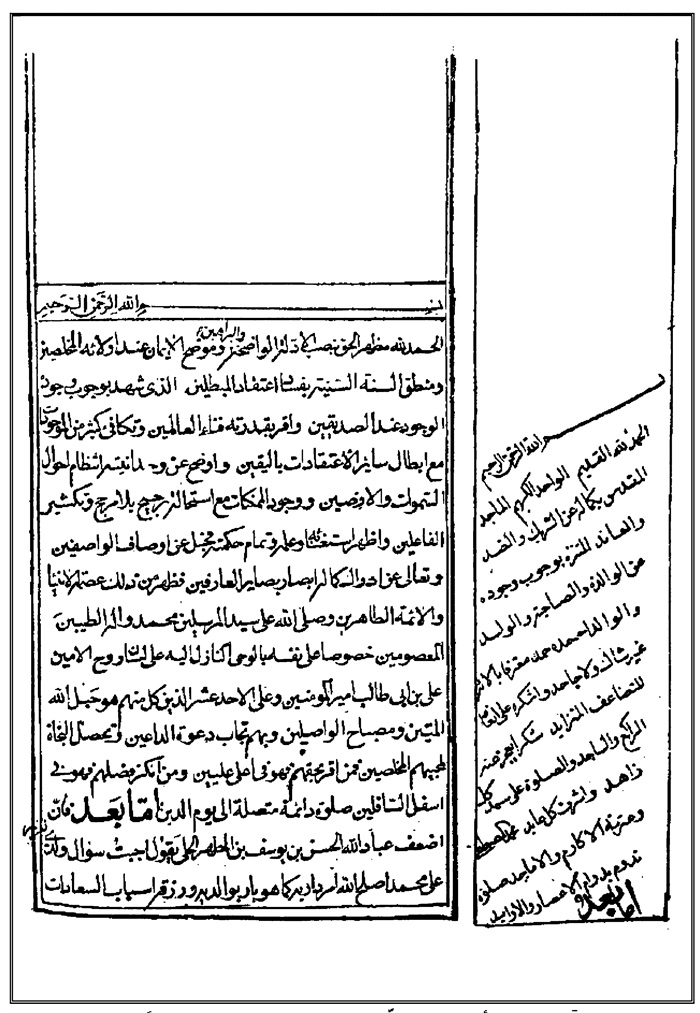 بسم الله الرحمن الرحيم
الحمد لله مظهر الحق بنصب الادلة الواضحة والبراهين وموضح الايمان عند اوليائه المخلصين
ومنطق السنة السنية بفساد اعتقاد المبطلين الذى شهد بوجوب وجوده
الوجود عند الصديقين واقر بقدرته فناء العالمين وتكافى كثير من الموجودات
مع ابطال ساير الاعتقادات باليقين واوضح عن وحدانيته انتظام احوال
السموات والارضين ووجود الممكنات مع استحالة ترجيح بلا مرجح وتكثير
الفاعلين واظهر استغنائه وعلمه وتمام حكمته فجل عن اوصاف الواصفين
وتعالى عن ادراكه ابصار بصاير العارفين فظهر من ذلك عصمة الانبياء
والائمة الطاهرين وصلى الله على سيد المرسلين محمد واله الطيبين
المعصومين خصوصا على نفسه بالوحى النازل اليه على لسان روح الامين
على بن ابى طالب امير المؤمنين وعلى الاحد عشر الذين كل منهم هو حبل الله
المتين ومصباح الواصلين وبهم تجاب دعوة الداعين فى تحصل النجاة
لمحبيهم المخلصين فمن اقر بحقهم فهو فى اعلى عليين ومن انكر فضلهم فهو فى
اسفل السافلين صلوة دائمة متصلة الى يوم الدين اما بعد فان
اضعف عباد الله الحسن بن يوسف بن المطهر الحلى يقول اجبت سؤال ولدى العزيز
على محمد اصلح الله امر داريه كما هو بار بوالديه ورزقه اسباب السعادات
بسم الله الرحمن الرحيم
الحمد لله القديم الواحد الكريم الماجد
المقدس بكماله عن الشريك والضد
والمعاند المتنزه بوجوب وجوده
عن الوالدة والصاحبة والولد
والوالد احمده حمد معترف بالائه
غير شاك ولا جاحد واشكره على انعامه
المتضاعف المتزايد شكرا يعجز عنه
الراكع والساجد والصلوة على سيد كل
زاهد واشرف كل عابد محمد المصطفى
وعترته الاكارم والاماجد صلوة
تدوم بدوام الاعصار والاوابد
اما بعد